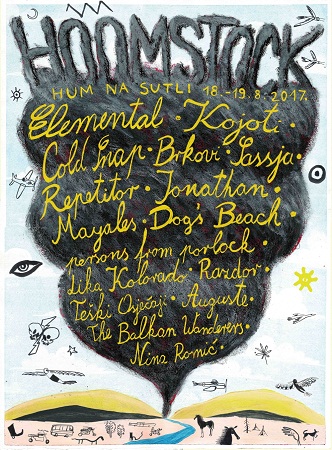 HOOMSTOCK
HUM NA SUTLI 18.-19.8.2017.
Elemental · Kojoti ·
Cold Snap · Brkovi · Sassja ·
Repetitor · Jonathan ·
Mayales · Dog's Beach ·
persons from porlock ·
Lika Kolorado · Ravdor ·
Teški Osjećaji · Auguste ·
The Balkan Wanderers ·
Nina Romić ·